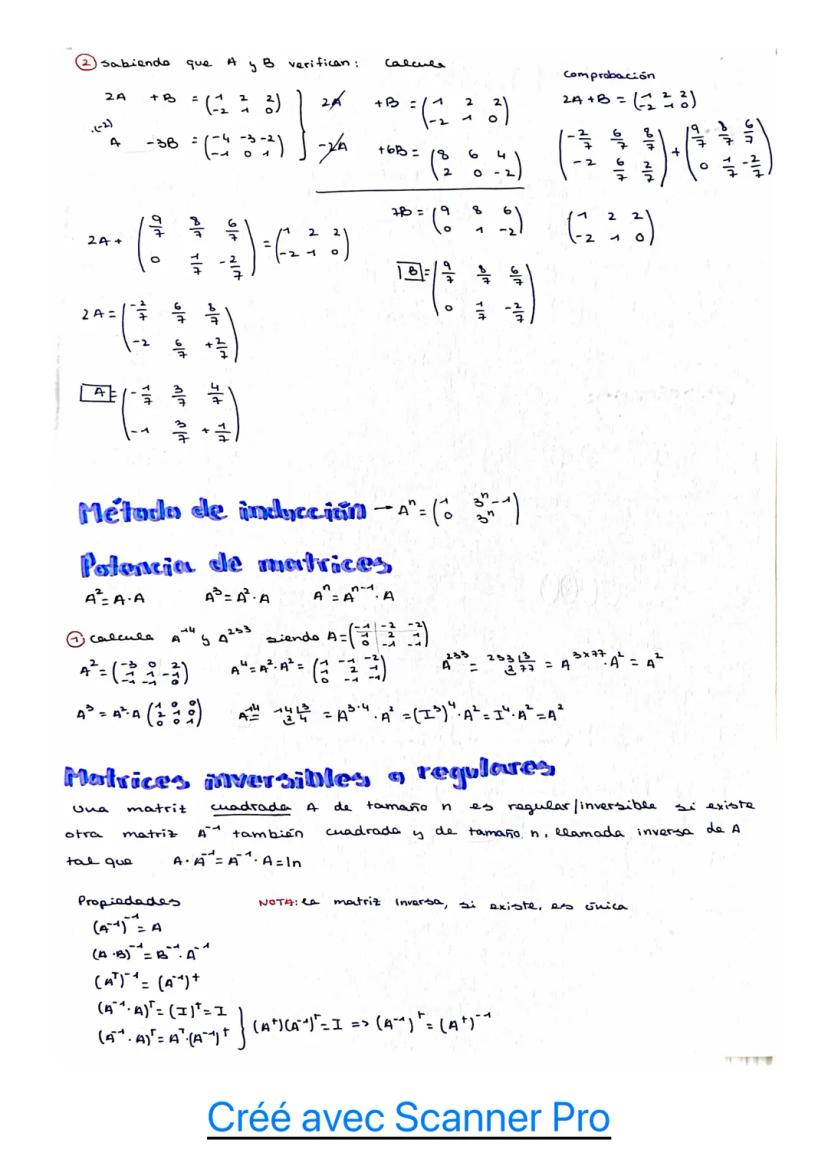 ② Sabiendo que A y B verifican: Calcula
2A +B = (1 2 2 / -2 1 0)
(-2) A -3B = (-4 -3 -2 / -1 0 1)
2A +B = (1 2 2 / -2 1 0)
-2A +6B = (8 6 4 / 2 0 -2)
7B = (9 8 6 / 0 1 -2)
B = (9/7 8/7 6/7 / 0 1/7 -2/7)
Comprobación
2A + B = (1 2 2 / -2 1 0)
(-2/7 6/7 8/7 / -2 6/7 2/7) + (9/7 8/7 6/7 / 0 1/7 -2/7)
(1 2 2 / -2 1 0)
2A + (9/7 8/7 6/7 / 0 1/7 -2/7) = (1 2 2 / -2 1 0)
2A = (-2/7 6/7 8/7 / -2 6/7 +2/7)
A = (-1/7 3/7 4/7 / -1 3/7 +1/7)
Método de inducción → Aⁿ = (1 3ⁿ-1 / 0 3ⁿ)
Potencia de matrices
A² = A·A A³ = A²·A Aⁿ = Aⁿ⁻¹·A
① Calcula A¹⁴ y A²³³ siendo A = (-1 -2 -2 / 1 2 1 / 0 -1 -1)
A² = (-3 0 2 / 1 1 -1 / -1 -1 0) A⁴ = A²·A² = (-1 -1 -2 / 1 2 1 / 0 -1 -1) A²³³ = 233 |3 / 2 77 = A³ˣ⁷⁷·A² = A²
A³ = A²·A (1 0 0 / 2 1 0 / 0 0 1) A¹⁴ = 14 |3 / 2 4 = A³·⁴·A² = (I³)⁴·A² = I⁴·A² = A²
Matrices inversibles o regulares
Una matriz cuadrada A de tamaño n es regular/inversible si existe
otra matriz A⁻¹ también cuadrada y de tamaño n, llamada inversa de A
tal que A·A⁻¹ = A⁻¹·A = In
Propiedades NOTA: La matriz inversa, si existe, es única
(A⁻¹)⁻¹ = A
(A·B)⁻¹ = B⁻¹·A⁻¹
(Aᵀ)⁻¹ = (A⁻¹)ᵗ
(A⁻¹·A)ᵀ = (I)ᵗ = I
(A⁻¹·A)ᵀ = Aᵀ·(A⁻¹)ᵗ } (Aᵗ)(A⁻¹)ᵗ = I => (A⁻¹)ᵗ = (Aᵗ)⁻¹
Créé avec Scanner Pro